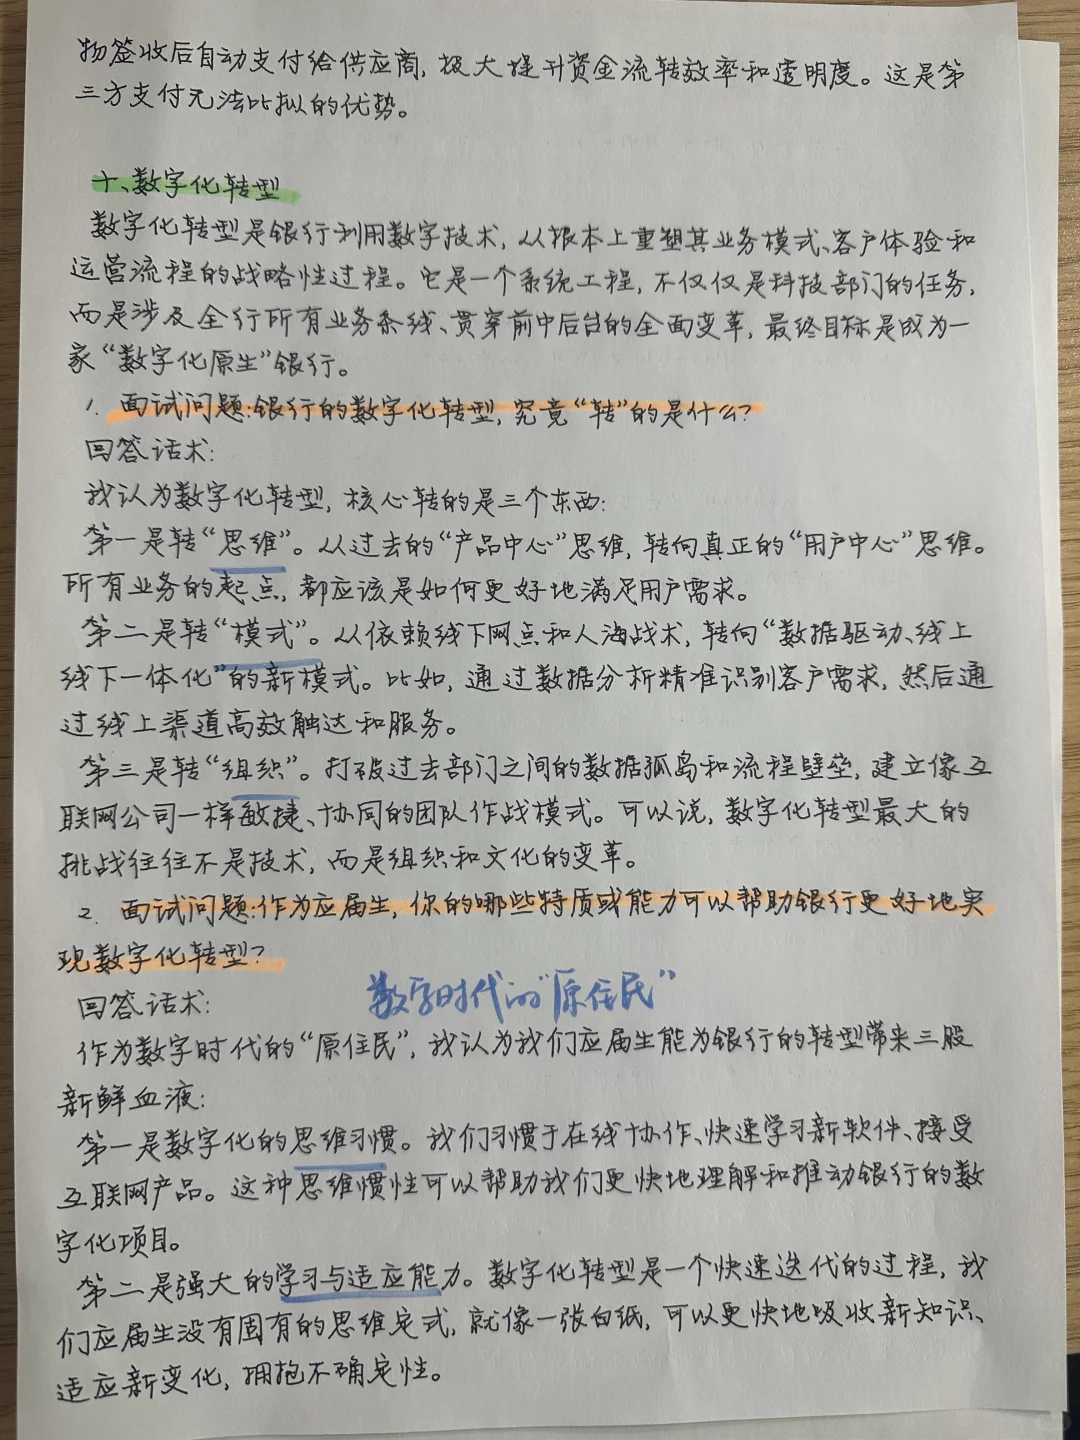 物签收后自动支付给供应商,极大提升资金流转效率和透明度。这是第
三方支付无法比拟的优势。
十、数字化转型
数字化转型是银行利用数字技术,从根本上重塑其业务模式、客户体验和
运营流程的战略性过程。它是一个系统工程,不仅仅是科技部门的任务,
而是涉及全行所有业务条线、贯穿前中后台的全面变革,最终目标是成为一
家“数字化原生”银行。
1. 面试问题:银行的数字化转型,究竟“转”的是什么?
回答话术:
我认为数字化转型,核心转的是三个东西:
第一是转“思维”。从过去的“产品中心”思维,转向真正的“用户中心”思维。
所有业务的起点,都应该是如何更好地满足用户需求。
第二是转“模式”。从依赖线下网点和人海战术,转向“数据驱动、线上
线下一体化”的新模式。比如,通过数据分析精准识别客户需求,然后通
过线上渠道高效触达和服务。
第三是转“组织”。打破过去部门之间的数据孤岛和流程壁垒,建立像互
联网公司一样敏捷、协同的团队作战模式。可以说,数字化转型最大的
挑战往往不是技术,而是组织和文化的变革。
2. 面试问题:作为应届生,你的哪些特质或能力可以帮助银行更好地实
现数字化转型?
数字时代的“原住民”
回答话术:
作为数字时代的“原住民”,我认为我们应届生能为银行的转型带来三股
新鲜血液:
第一是数字化的思维习惯。我们习惯于在线协作、快速学习新软件、接受
互联网产品。这种思维惯性可以帮助我们更快地理解和推动银行的数
字化项目。
第二是强大的学习与适应能力。数字化转型是一个快速迭代的过程,我
们应届生没有固有的思维定式,就像一张白纸,可以更快地吸收新知识、
适应新变化,拥抱不确定性。